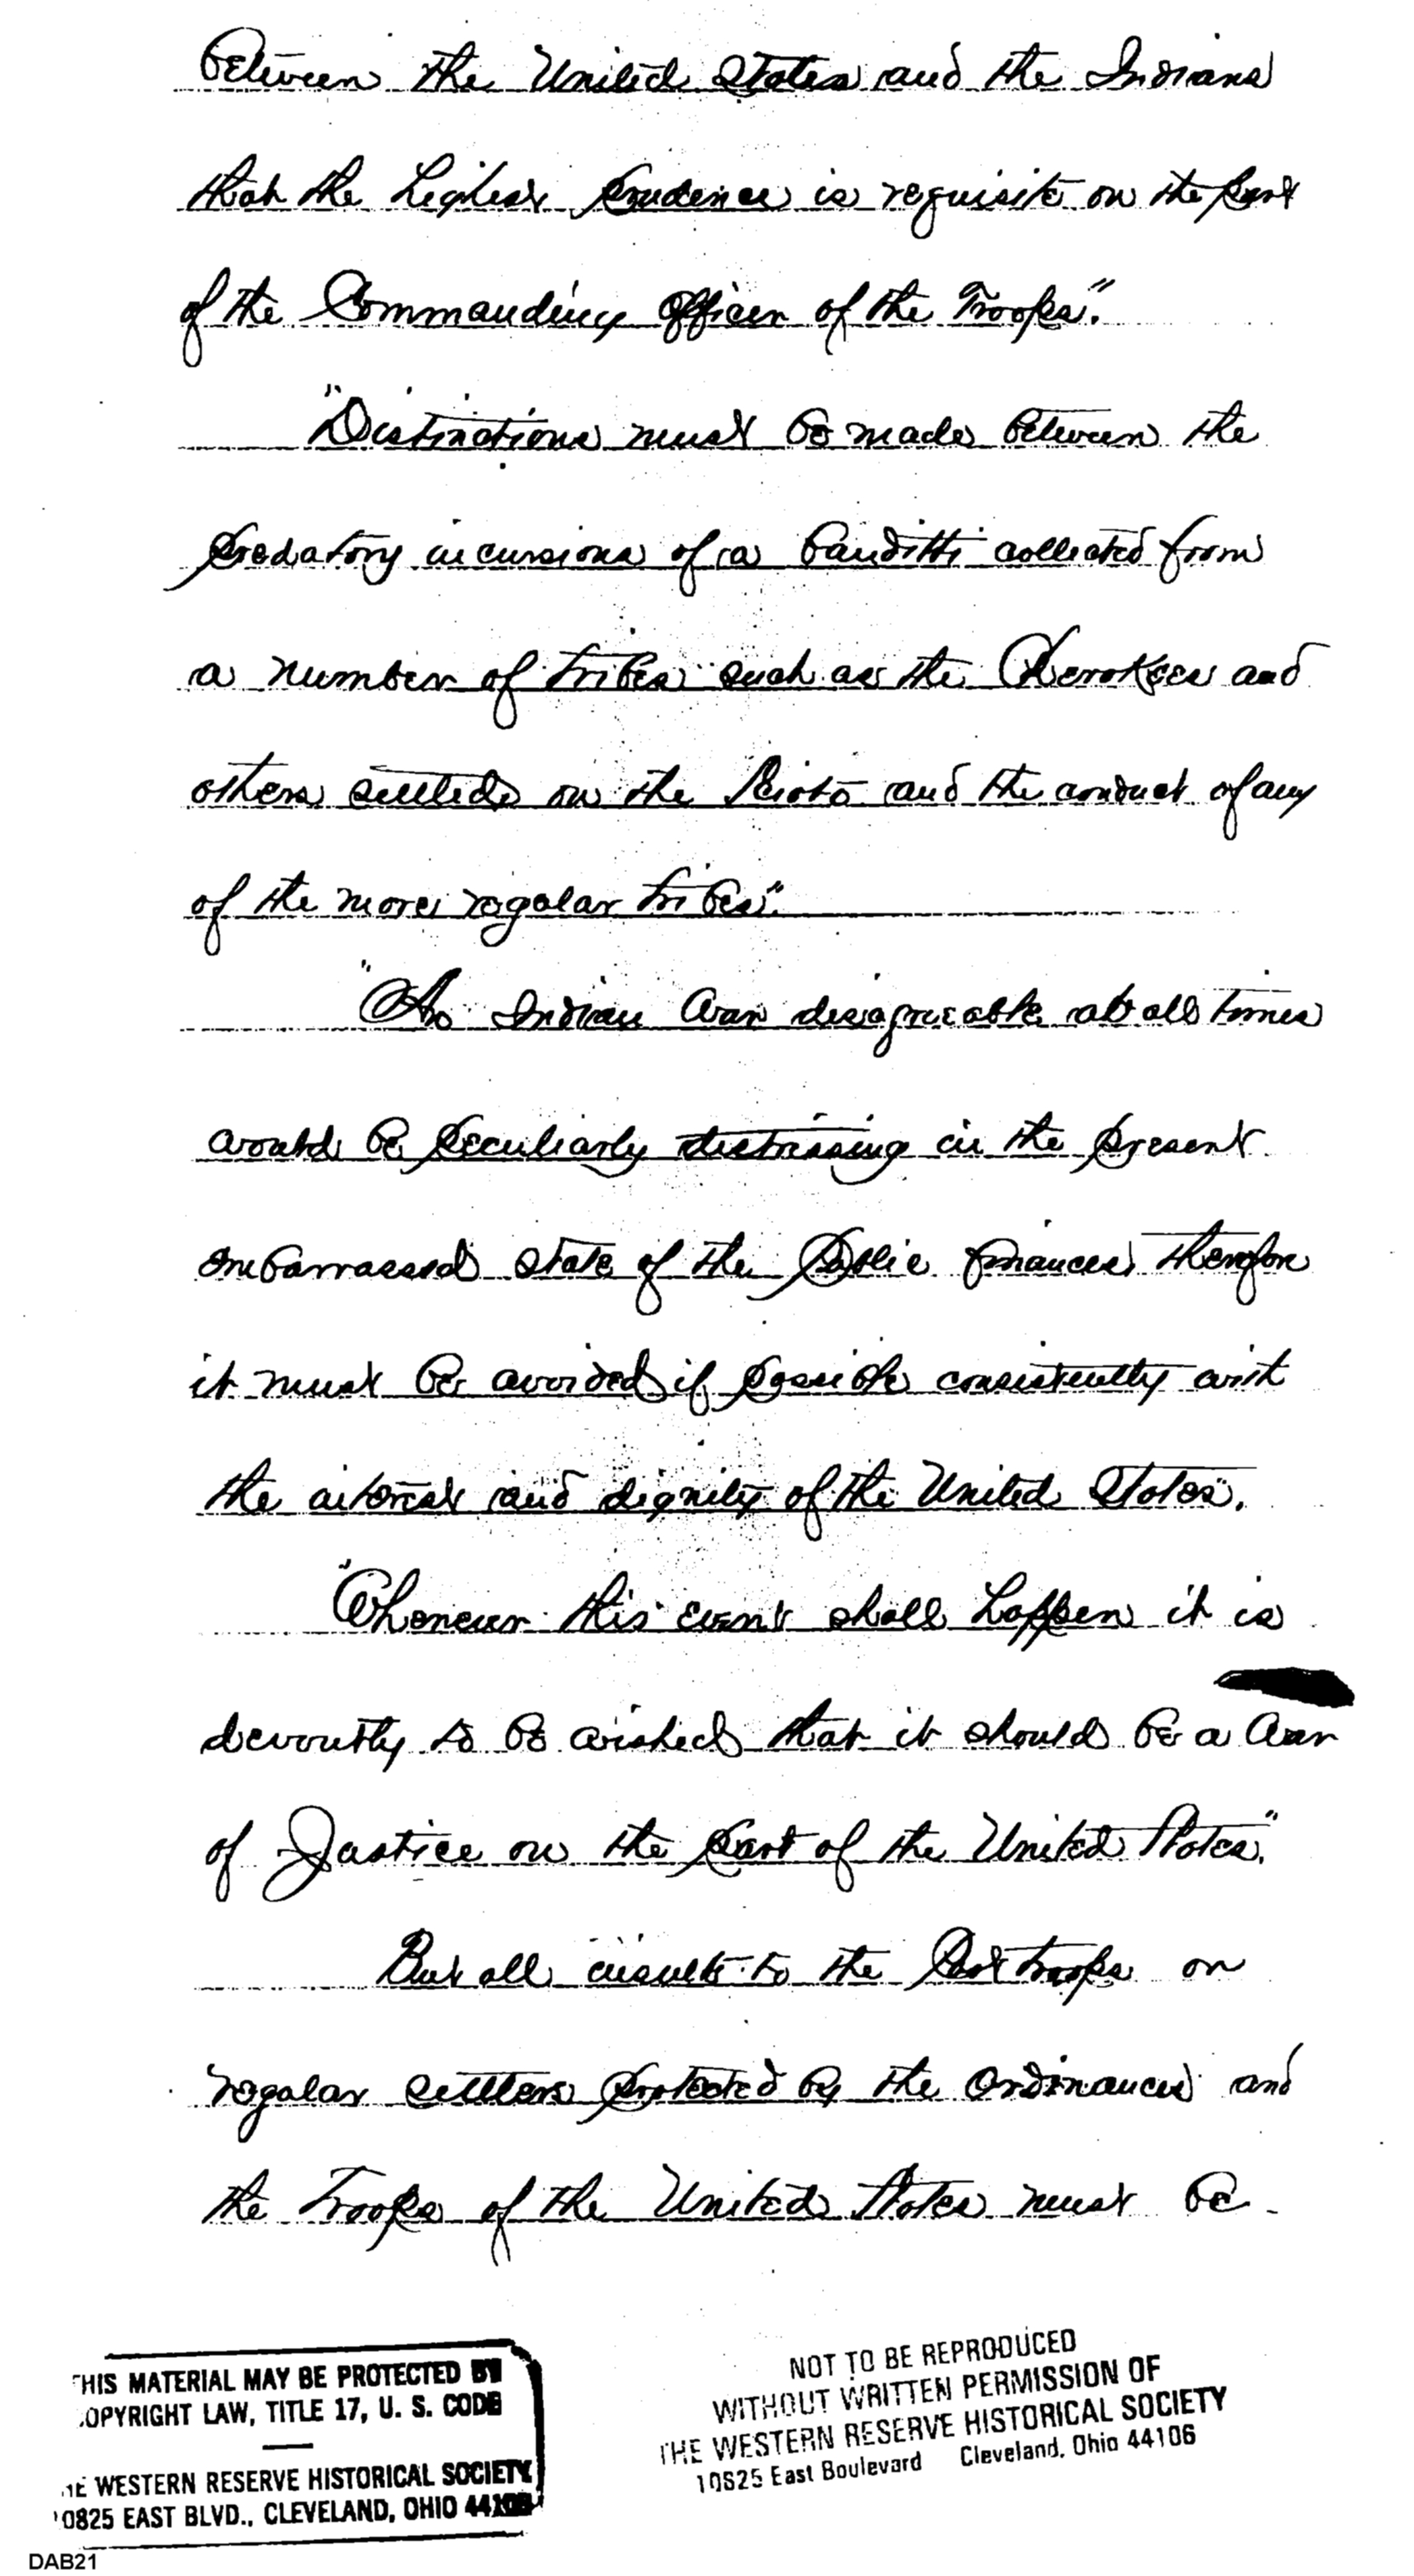 between the United States and the Indians
that the highest prudence is requisite on the part
of the Commanding officer of the Troops".
"Distinctions must be made between the
predatory incursions of a banditti collected from
a number of tribes such as the Cherokees and
others settled on the Scioto and the conduct of any
of the more regular tribes".
"An Indian War disagreeable at all times
would be peculiarly distressing in the present
embarrassed state of the Public finances, therefore
it must be avoided if possible consistently with
the interest and dignity of the United States".
"Whenever this event shall happen it is
devoutly to be wished that it should be a War
of Justice on the part of the United States."
But all insults to the troops or
regular settlers protected by the ordinances and
the Troops of the United States must be
THIS MATERIAL MAY BE PROTECTED BY
COPYRIGHT LAW, TITLE 17, U. S. CODE
THE WESTERN RESERVE HISTORICAL SOCIETY
10825 EAST BLVD., CLEVELAND, OHIO 44106
NOT TO BE REPRODUCED
WITHOUT WRITTEN PERMISSION OF
THE WESTERN RESERVE HISTORICAL SOCIETY
10825 East Boulevard Cleveland, Ohio 44106
DAB21